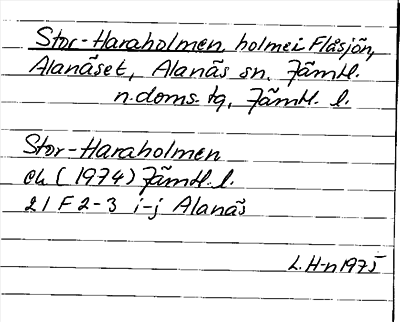 Stor-Haraholmen, holme i Flåsjön,
Alanäset, Alanäs sn. Jämtl.
n. doms. tg, Jämtl. l.
Stor-Haraholmen
ek (1974) Jämtl. l.
21 F 2-3 i-j Alanäs
L. H-n 1975